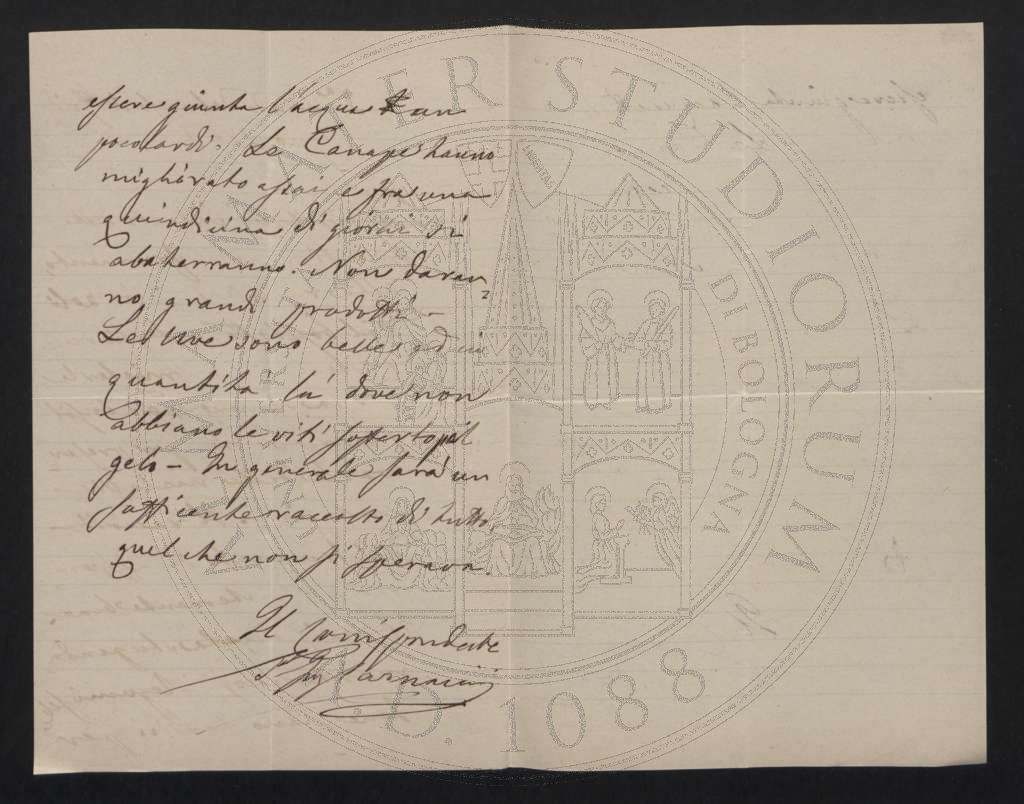 essere giunta l'acqua un
poco tardi. Le Canape hanno
migliorato assai e fra una
quindicina di giorni si
abatterranno. Non daran
no grandi prodotti –
Le Uve sono belle ed in
quantità là dove non
abbiano le viti sofferto pel
gelo – In generale sarà un
sufficente raccolto di tutto,
quel che non si sperava.
Il Corrispondente
ALMA MATER STUDIORUM
UNIVERSITÀ DI BOLOGNA
A.D. 1088